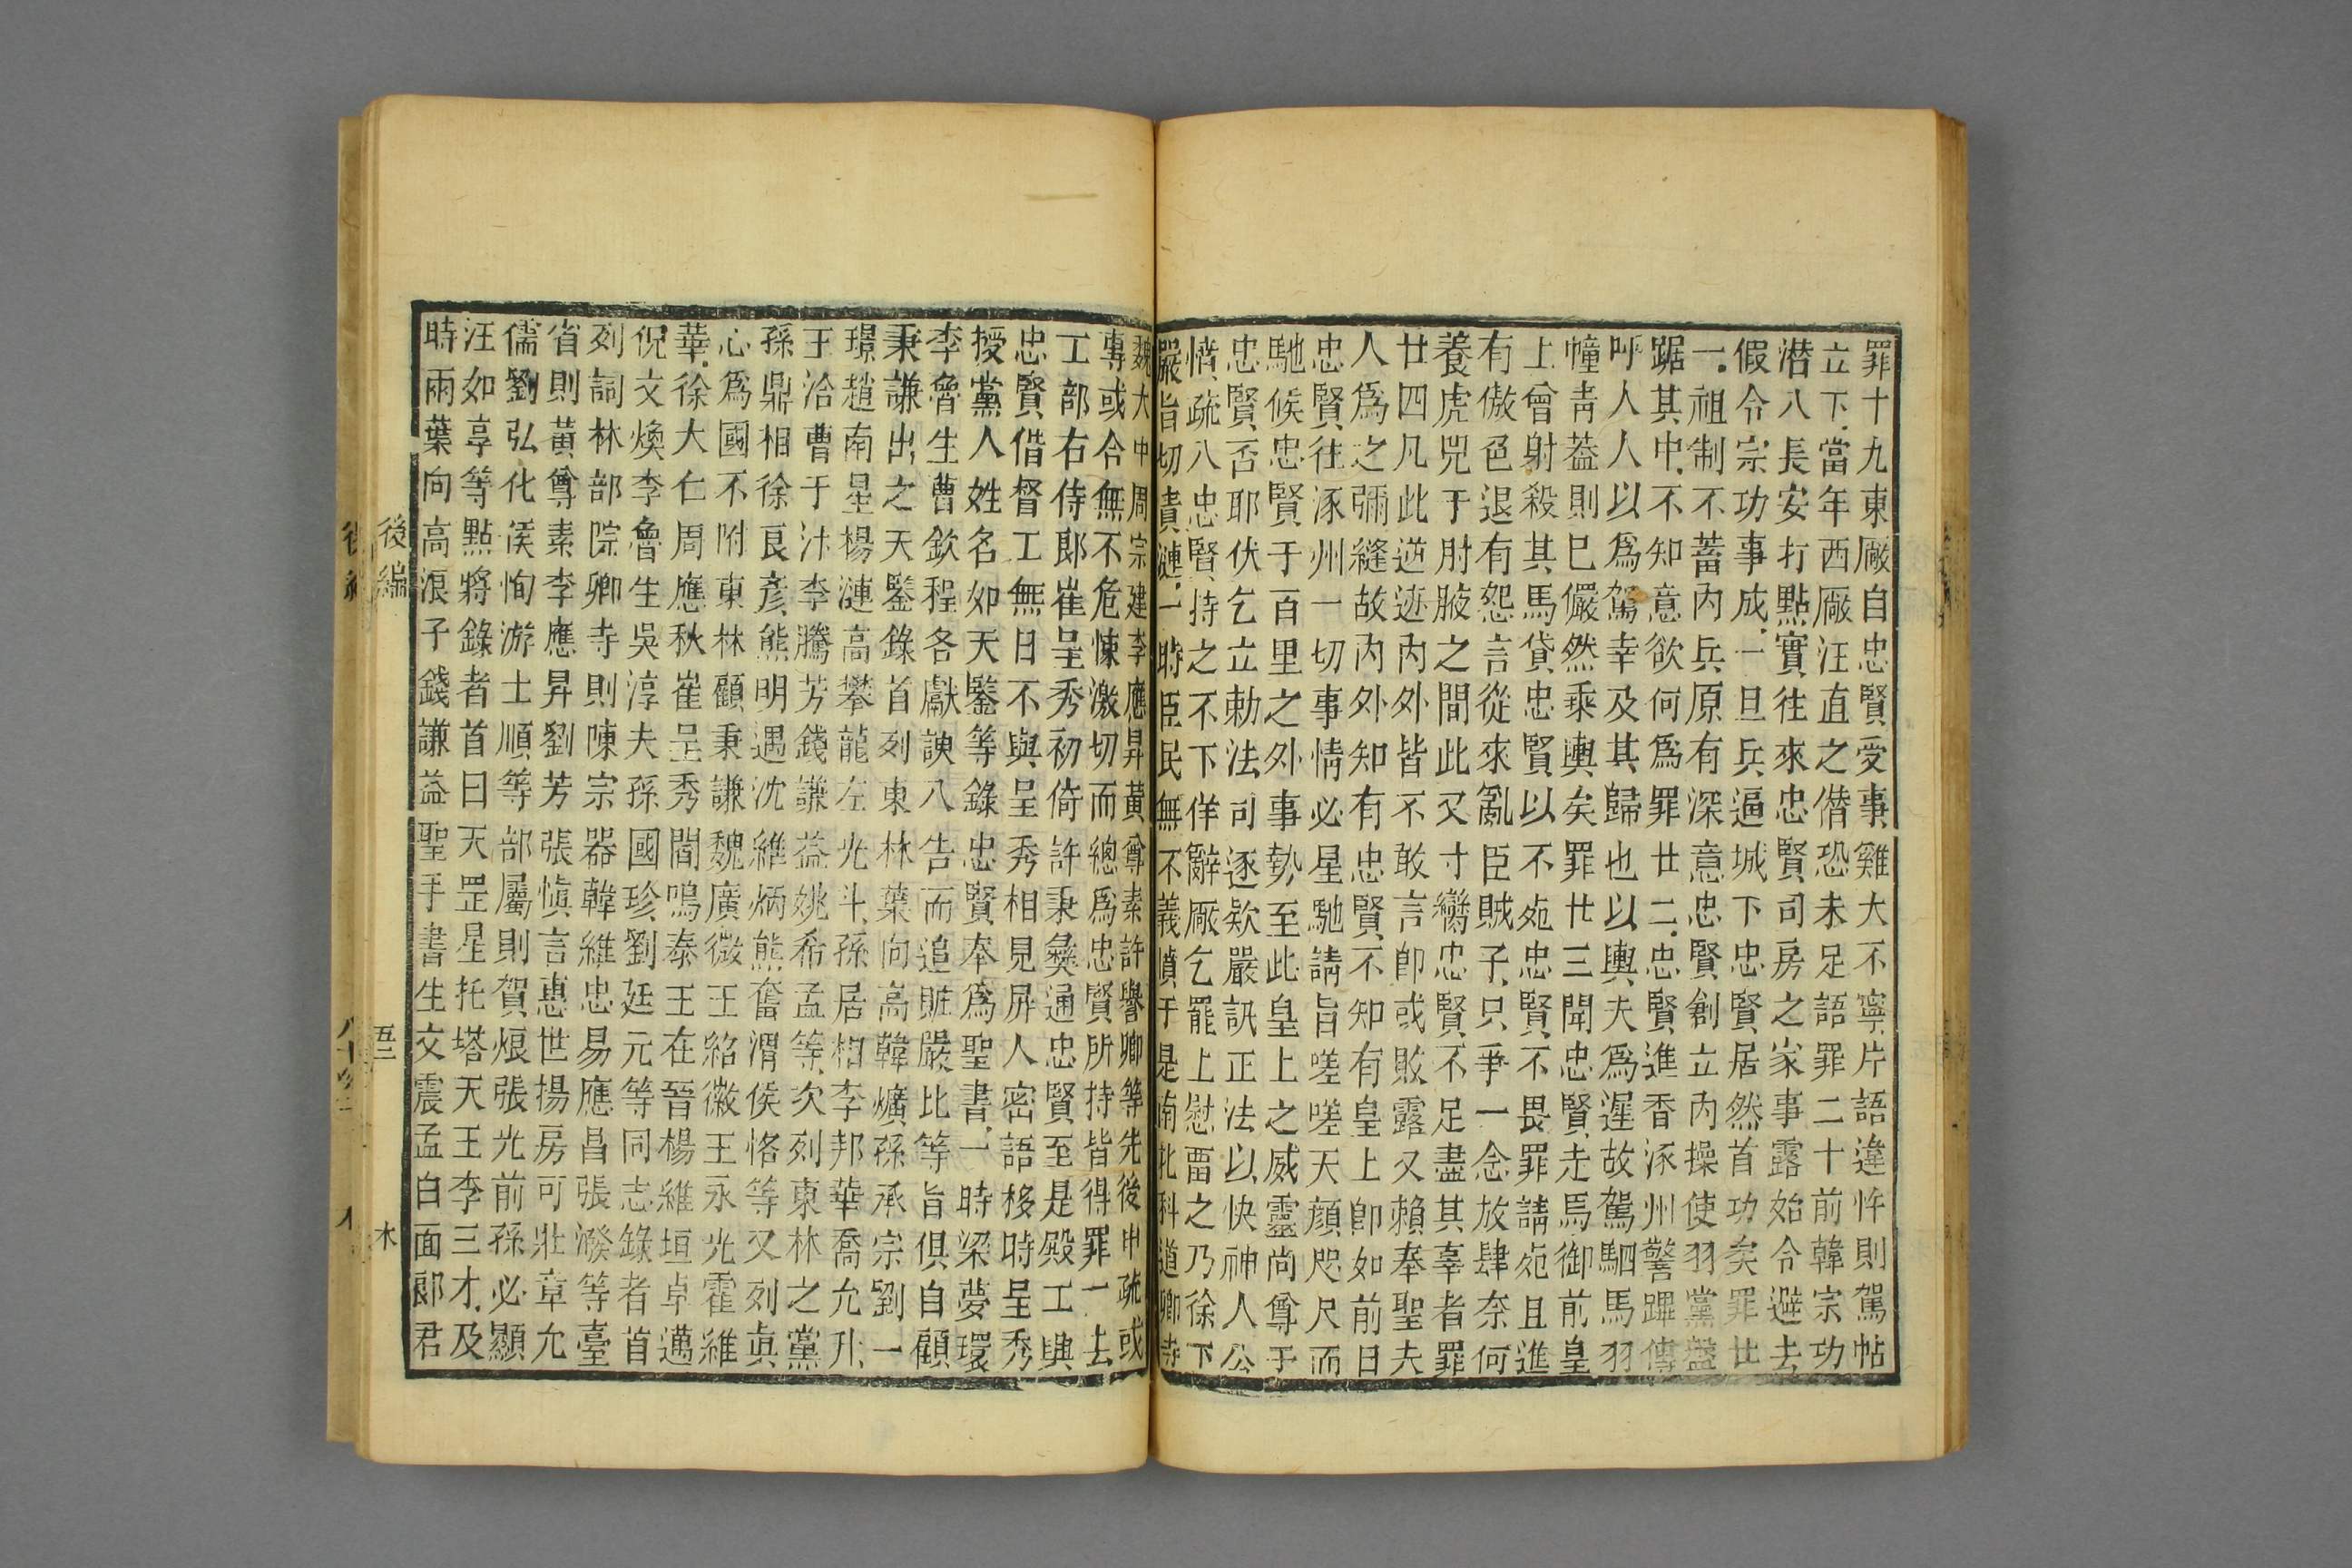 罪十九東厰自忠賢受事雞犬不寧片語違忤則駕帖
立下當年西厰汪直之僭恐未足語罪二十前韓宗功
潜入長安打點實往來忠賢司房之家事露始令避去
假令宗功事成一旦兵逼城下忠賢居然首功矣罪廿
一祖制不蓄內兵原有深意忠賢創立內操使羽黨盤
踞其中不知意欲何爲罪廿二忠賢進香涿州警蹕傳
呼人人以爲駕幸及其歸也以輿夫爲遲故駕駟馬羽
幢靑葢則已儼然乘輿矣罪廿三聞忠賢走馬御前皇
上曾射殺其馬貸忠賢以不死忠賢不畏罪請死且進
有傲色退有怨言從來亂臣賊子只爭一念放肆奈何
養虎兕于肘腋之間此又寸臠忠賢不足盡其辜者罪
廿四凡此逆迹內外皆不敢言卽或敗露又賴奉聖夫
人爲之彌縫故內外知有忠賢不知有皇上卽如前日
忠賢往涿州一切事情必星馳請旨嗟嗟天顔咫尺而
馳候忠賢于百里之外事勢至此皇上之威靈尚尊于
忠賢否耶伏乞立勅法司逐欵嚴訊正法以快神人公
憤疏入忠賢持之不下佯辭厰乞罷上慰畱之乃徐下
嚴旨切責漣一時臣民無不義憤于是南北科道卿寺
魏大中周宗建李應昇黃尊素許譽卿等先後申疏或
專或合無不危悚激切而總爲忠賢所持皆得罪一去
工部右侍郎崔呈秀初倚許秉彝通忠賢至是殿工興
忠賢借督工無日不與呈秀相見屏人密語移時呈秀
授黨人姓名如天鑒等錄忠賢奉爲聖書一時梁夢環
李魯生曹欽程各獻諛入告而追賍嚴比等旨俱自顧
秉謙出之天鑒錄首列東林葉向高韓爌孫承宗劉一
璟趙南星楊漣高攀龍左光斗孫居相李邦華喬允升
王洽曹于汴李騰芳錢謙益姚希孟等次列東林之黨
孫鼎相徐良彥熊明遇沈維炳熊奮渭侯恪等又列眞
心爲國不附東林顧秉謙魏廣微王紹徽王永光霍維
華徐大化周應秋崔呈秀閻鳴泰王在晉楊維垣卓邁
倪文煥李魯生吳淳夫孫國珍劉廷元等同志錄者首
列詞林部院卿寺則陳宗器韓維忠易應昌張潑等臺
省則黃尊素李應昇劉芳張愼言惠世揚房可壯章允
儒劉弘化侯恂游士順等部屬則賀烺張光前孫必顯
汪如享等點將錄者首曰天罡星托塔天王李三才及
時雨葉向高浪子錢謙益聖手書生文震孟白面郎君
後編
木